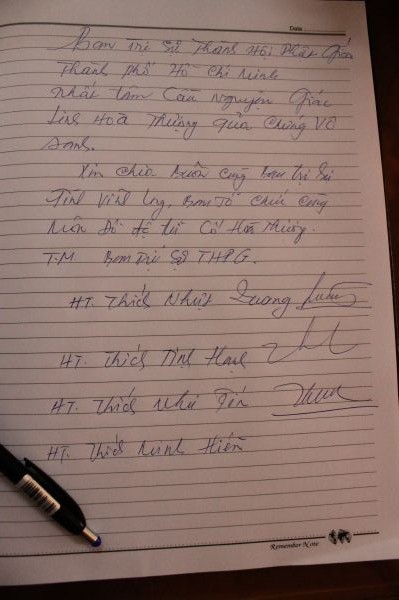 Date
Ban Trị Sự Thành Hội Phật Giáo
Thành phố Hồ Chí Minh
Nhất tâm Cầu Nguyện Giác
Linh Hoà Thượng Cao Đăng
Xin chia buồn cùng Ban Trị Sự
Tỉnh Vĩnh Long, Ban Tổ Chức cùng
Môn Đồ đệ tử Cố Hoà Thượng.
T.M Ban Trị Sự THPG.
HT. Thích Nhựt Quang
HT. Thích Tịnh Hạnh
HT. Thích Như Tín
HT. Thích Minh Hiền
Remember Note